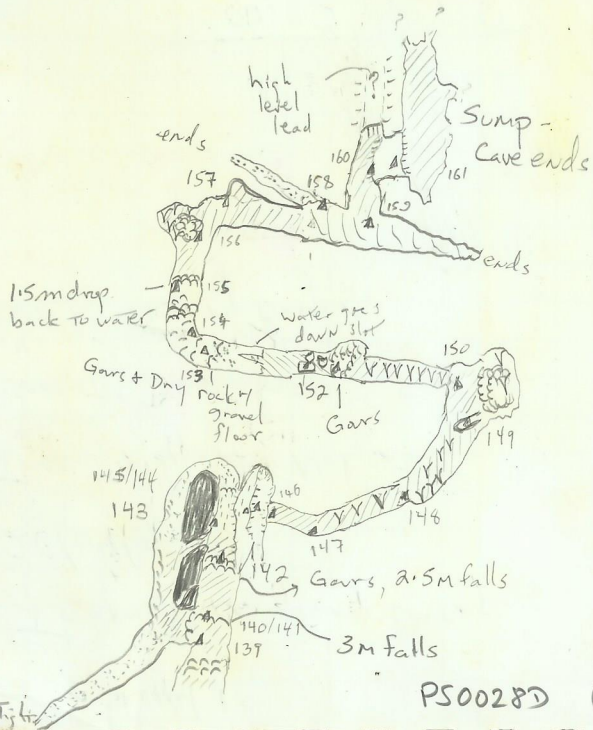 ? ?
high
level
lead
?
Sump -
Cave ends
ends
160
161
157
158
159
156
ends
1.5m drop
back to water
155
154
water goes
down slot
150
Gours + Dry
153
rock &
gravel
floor
152
Gours
149
145/144
143
146
148
147
142
Gours, 2.5m falls
140/141
139
3m falls
PS0028D
Tight